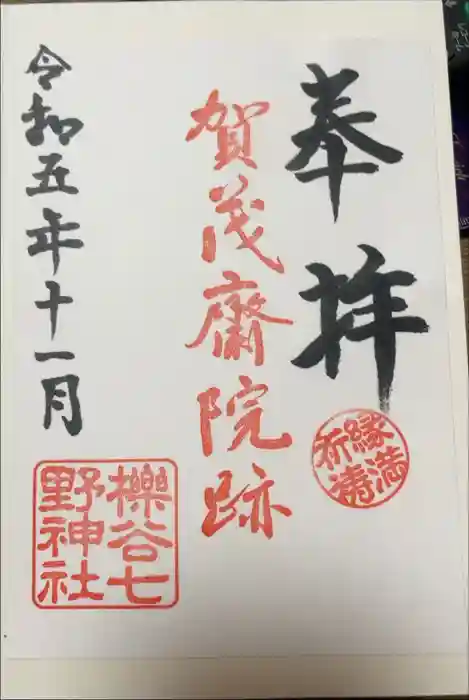 奉拝
縁満
祈祷
賀茂斎院跡
令和五年十一月
櫟谷七
野神社